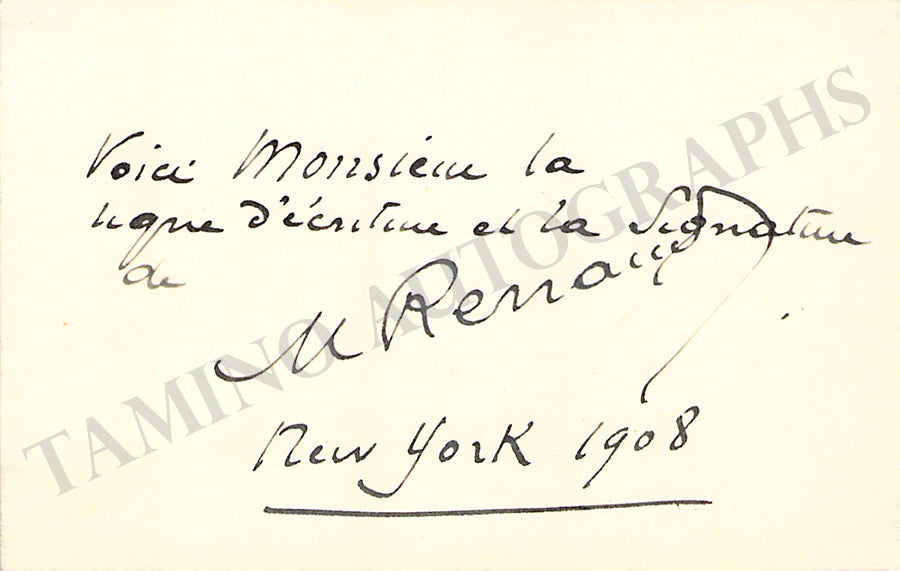 Voici Monsieur la
ligne d'écriture et la Signature
de
M Renaud
New York 1908
TAMINO AUTOGRAPHS